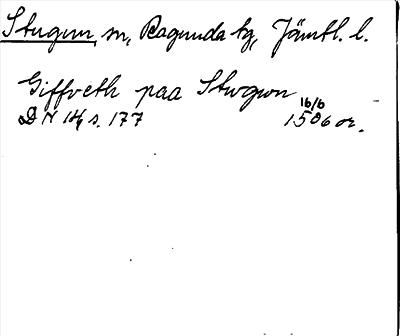 Stugun, sn, Ragunda tg, Jämtl. l.
Giffveth paa Stwgwn
16/6
DN 14, s. 177 1506 or.